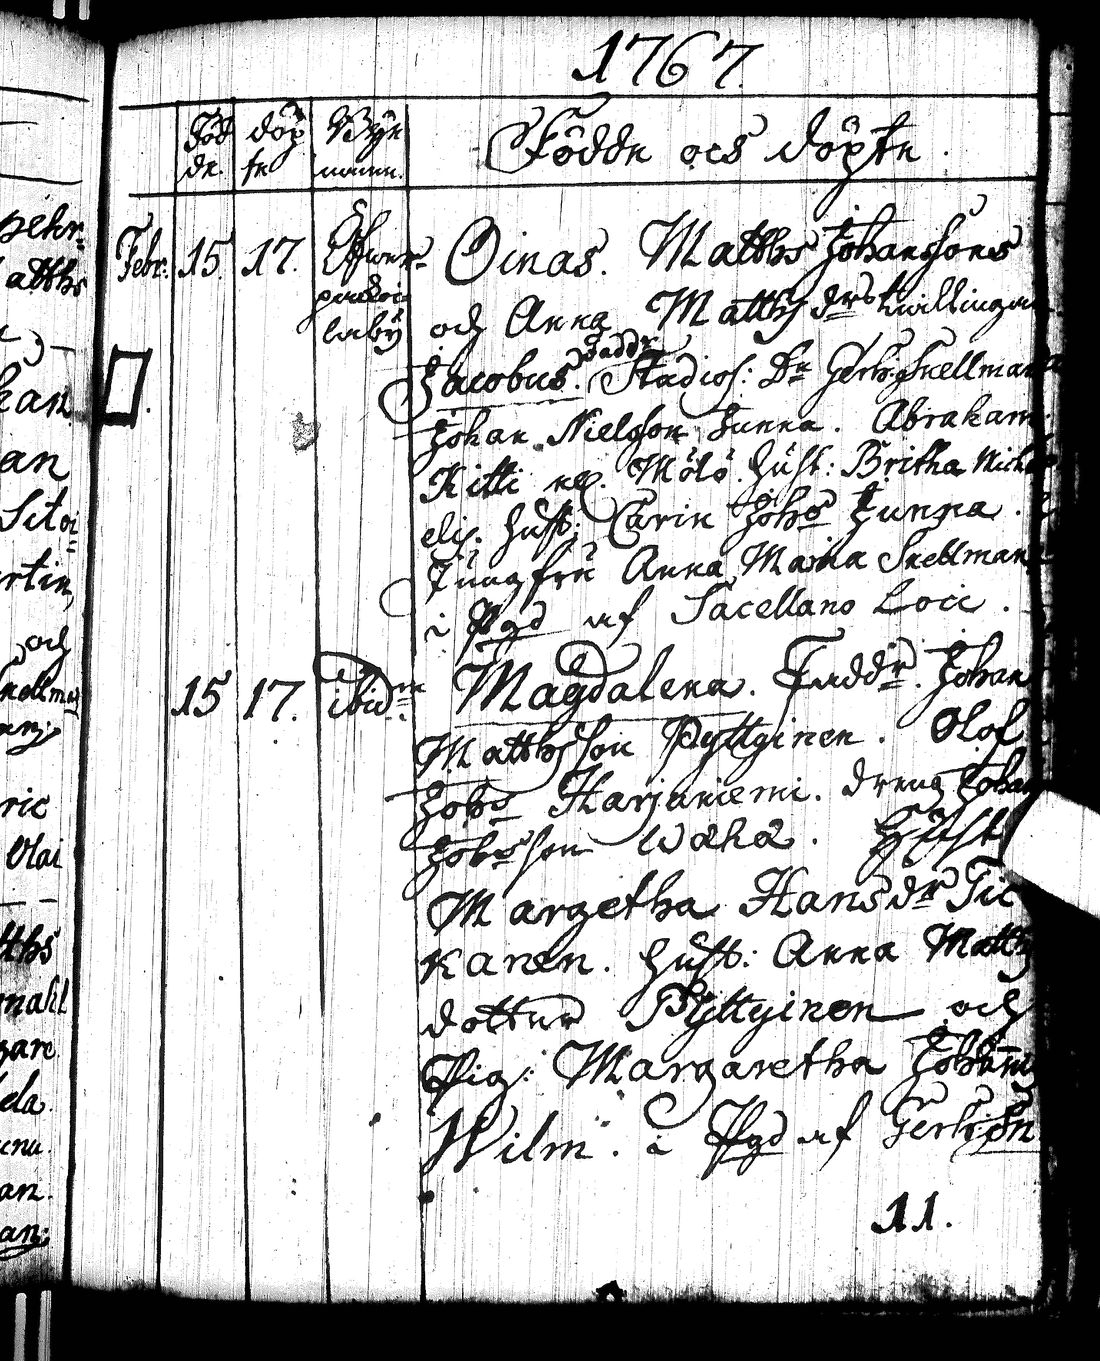 1767.
Föd de. döp te Byn namn. Födde och döpte.
Febr: 15. 17. Öfwer- Oinas. Matths Johanssons
laby och Anna Matthsdrs twillingar
Jacobus. Faddr Studios: Dn Gerh: Snellman
Johan Nielsson Junna. Abraham
Kitti Mölö. Hust: Britha Mich
elis. Hust: Carin Johs Junna.
Jungfru Anna Maria Snellman
i Pgd af Sacellano Loci.
15 17. ibidm Magdalena. Faddr. Johan
Matthsson Pyttyinen. Olof
Johs Harjuniemi. dreng Johan
Johsson Wähä. Hust
Margetha Hansdr Tic
karen. Hust: Anna Matths
dotter Pyttyinen och
Pig: Margaretha Johanns
Wilm. i Pgd af Gerh: Sn
11.
pehr
Matths
han
an
Sitoi
rtin,
och
Snellman
ric
Olai
tths
mahl
gare
ela
an.
an: